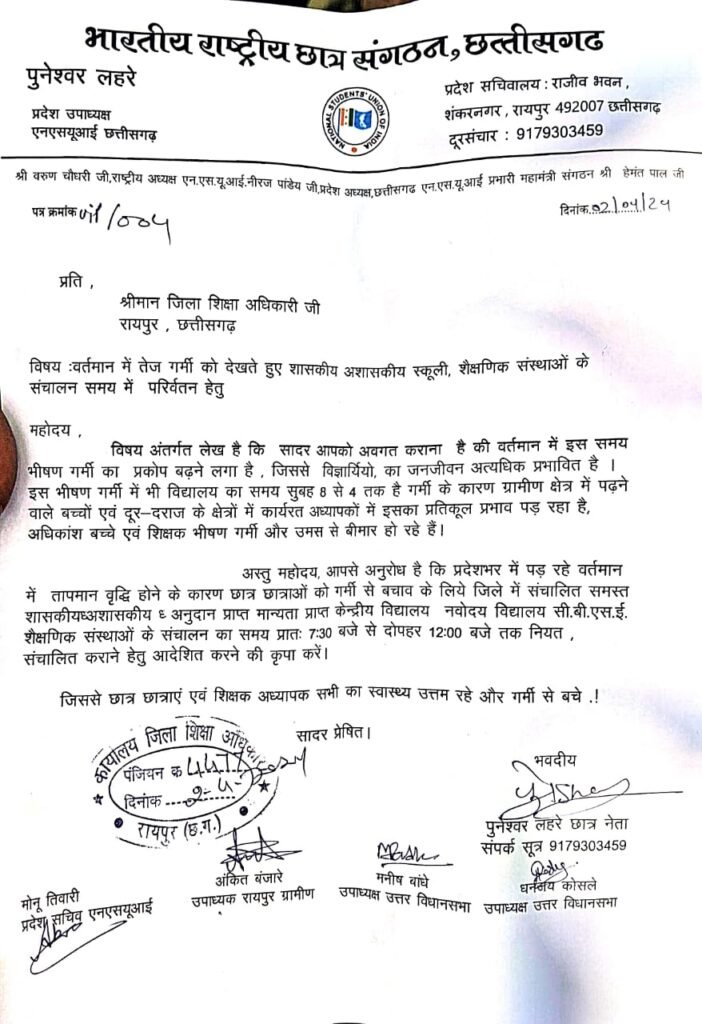 भारतीय राष्ट्रीय छात्र संगठन, छत्तीसगढ
पुनेश्वर लहरे
प्रदेश उपाध्यक्ष
एनएसयूआई छत्तीसगढ़
NATIONAL STUDENTS' UNION OF INDIA
प्रदेश सचिवालय : राजीव भवन,
शंकरनगर, रायपुर 492007 छत्तीसगढ़
दूरसंचार : 9179303459
श्री वरुण चौधरी जी,राष्ट्रीय अध्यक्ष एन.एस.यू.आई.नीरज पांडेय जी,प्रदेश अध्यक्ष,छत्तीसगढ एन.एस.यू.आई प्रभारी महामंत्री संगठन श्री हेमंत पाल जी
पत्र क्रमांक /004
दिनांक 02/04/24
प्रति ,
श्रीमान जिला शिक्षा अधिकारी जी
रायपुर , छत्तीसगढ़
विषय :वर्तमान में तेज गर्मी को देखते हुए शासकीय अशासकीय स्कूली, शैक्षणिक संस्थाओं के
संचालन समय में परिर्वतन हेतु
महोदय ,
विषय अंतर्गत लेख है कि सादर आपको अवगत कराना है की वर्तमान में इस समय
भीषण गर्मी का प्रकोप बढ़ने लगा है , जिससे विज्ञार्थियो, का जनजीवन अत्यधिक प्रभावित है ।
इस भीषण गर्मी में भी विद्यालय का समय सुबह 8 से 4 तक है गर्मी के कारण ग्रामीण क्षेत्र में पढ़ने
वाले बच्चों एवं दूर–दराज के क्षेत्रों में कार्यरत अध्यापकों में इसका प्रतिकूल प्रभाव पड़ रहा है,
अधिकांश बच्चे एवं शिक्षक भीषण गर्मी और उमस से बीमार हो रहे हैं।
अस्तु महोदय, आपसे अनुरोध है कि प्रदेशभर में पड़ रहे वर्तमान
में तापमान वृद्धि होने के कारण छात्र छात्राओं को गर्मी से बचाव के लिये जिले में संचालित समस्त
शासकीयध्अशासकीय ध् अनुदान प्राप्त मान्यता प्राप्त केन्द्रीय विद्यालय नवोदय विद्यालय सी.बी.एस.ई.
शैक्षणिक संस्थाओं के संचालन का समय प्रातः 7:30 बजे से दोपहर 12:00 बजे तक नियत ,
संचालित कराने हेतु आदेशित करने की कृपा करें।
जिससे छात्र छात्राएं एवं शिक्षक अध्यापक सभी का स्वास्थ्य उत्तम रहे और गर्मी से बचे .!
सादर प्रेषित।
कार्यालय जिला शिक्षा अधिकारी
पंजियन क
दिनांक
रायपुर (छ.ग.)
भवदीय
पुनेश्वर लहरे छात्र नेता
संपर्क सूत्र 9179303459
मोनू तिवारी
प्रदेश सचिव एनएसयूआई
अंकित बंजारे
उपाध्यक रायपुर ग्रामीण
मनीष बांधे
उपाध्यक्ष उत्तर विधानसभा
धनंजय कोसले
उपाध्यक्ष उत्तर विधानसभा